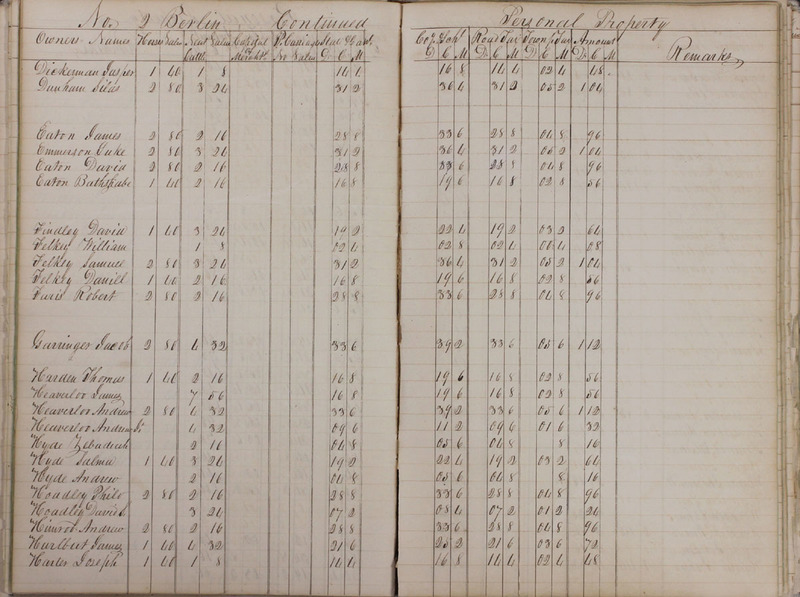 No. 2 Berlin Continued Personal Property
Owners Names Horses Value Neat Cattle Value Capital in Merch't. P. Carriages No Value State & Can. D C M Co & Sch'l D C M Road Tax D C M Town'p Tax D C M Amount D C M Remarks
Dickerman Jasper 1 40 1 8 14 4 16 8 14 4 02 4 48
Dunham Silas 2 80 3 24 31 2 36 4 31 2 05 2 1 04
Eaton James 2 80 2 16 28 8 33 6 28 8 04 8 96
Emmerson Luke 2 80 3 24 31 2 36 4 31 2 05 2 1 04
Eaton David 2 80 2 16 28 8 33 6 28 8 04 8 96
Eaton Bathshabe 1 40 2 16 16 8 19 6 16 8 02 8 56
Findley David 1 40 3 24 19 2 22 4 19 2 03 2 64
Felkey William 1 8 02 4 02 8 02 4 00 4 08
Felkey Samuel 2 80 3 24 31 2 36 4 31 2 05 2 1 04
Felkey Daniel 1 40 2 16 16 8 19 6 16 8 02 8 56
Faris Robert 2 80 2 16 28 8 33 6 28 8 04 8 96
Garringer Jacob 2 80 4 32 33 6 39 2 33 6 05 6 1 12
Harden Thomas 1 40 2 16 16 8 19 6 16 8 02 8 56
Heaverlor James 7 56 16 8 19 6 16 8 02 8 56
Heaverlor Andrew 2 80 4 32 33 6 39 2 33 6 05 6 1 12
Heaverlor Andrew Jr 4 32 09 6 11 2 09 6 01 6 32
Hyde Zebadiah 2 16 04 8 05 6 04 8 8 16
Hyde Salma 1 40 3 24 19 2 22 4 19 2 03 2 64
Hyde Andrew 2 16 04 8 05 6 04 8 8 16
Hoadley Philo 2 80 2 16 28 8 33 6 28 8 04 8 96
Hoadley David 3 24 07 2 08 4 07 2 01 2 24
Himrod Andrew 2 80 2 16 28 8 33 6 28 8 04 8 96
Hurlbut James 1 40 4 32 21 6 25 2 21 6 03 6 72
Harter Joseph 1 40 1 8 14 4 16 8 14 4 02 4 48